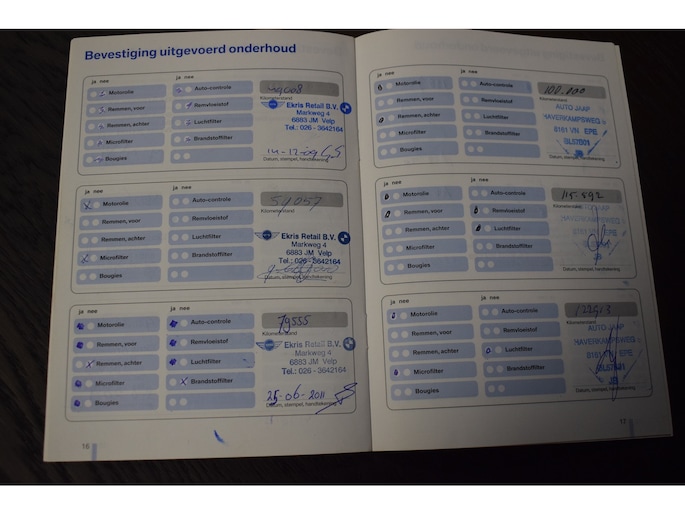 Bevestiging uitgevoerd onderhoud
ja nee
ja nee
Motorolie
Auto-controle
Remmen, voor
Remvloeistof
Remmen, achter
Luchtfilter
Microfilter
Brandstoffilter
Bougies
Kilometerstand
Ekris Retail B.V.
Markweg 4
6883 JM Velp
Tel.: 026 - 3642164
14-12-09
Datum, stempel, handtekening
ja nee
ja nee
Motorolie
Auto-controle
Remmen, voor
Remvloeistof
Remmen, achter
Luchtfilter
Microfilter
Brandstoffilter
Bougies
54057
Kilometerstand
Ekris Retail B.V.
Markweg 4
6883 JM Velp
Tel.: 026 - 3642164
Datum, stempel, handtekening
ja nee
ja nee
Motorolie
Auto-controle
Remmen, voor
Remvloeistof
Remmen, achter
Luchtfilter
Microfilter
Brandstoffilter
Bougies
79555
Kilometerstand
Ekris Retail B.V.
Markweg 4
6883 JM Velp
Tel.: 026 - 3642164
25-06-2011
Datum, stempel, handtekening
16
ja nee
ja nee
Motorolie
Auto-controle
Remmen, voor
Remvloeistof
Remmen, achter
Luchtfilter
Microfilter
Brandstoffilter
Bougies
100.000
Kilometerstand
AUTO JAAP
HAVERKAMPSWEG
8161 VN EPE
JB
Datum, stempel, handtekening
ja nee
ja nee
Motorolie
Auto-controle
Remmen, voor
Remvloeistof
Remmen, achter
Luchtfilter
Microfilter
Brandstoffilter
Bougies
115.892
Kilometerstand
AUTO JAAP
8161 VN EPE
JB
Datum, stempel, handtekening
ja nee
ja nee
Motorolie
Auto-controle
Remmen, voor
Remvloeistof
Remmen, achter
Luchtfilter
Microfilter
Brandstoffilter
Bougies
Kilometerstand
AUTO JAAP
HAVERKAMPSWEG
8161 VN EPE
JB
Datum, stempel, handtekening
17